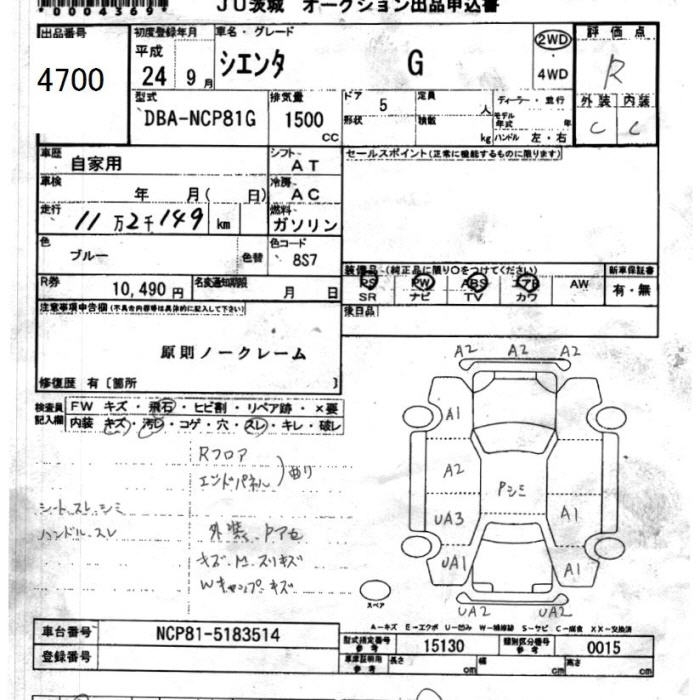 *00043696*
JU茨城 オークション出品申込書
出品番号 初度登録年月 車名・グレード 評価点
4700 平成 24 9月 シエンタ G 2WD 4WD R
型式 排気量 ドア 定員 ディーラー・並行 外装 内装
DBA-NCP81G 1500 cc 5 人 C C
形状 積載 kg モデル年式 年 ハンドル 左・右
車歴 自家用 シフト AT セールスポイント(正常に機能するものに限ります)
車検 年 月(日) 冷房 AC
走行 11万2千149 km 燃料 ガソリン
色 ブルー 色替 色コード 8S7
装備品(純正品に限り○をつけてください) 新車保証書
PS PW ABS エアB AW 有・無
SR ナビ TV カワ
R券 10,490円 名変通知期限 月 日
後日品
注意事項申告欄(不具合内容等は具体的に記入して下さい)
原則ノークレーム
修復歴 有〔箇所 〕
検査員記入欄 FW キズ・飛石・ヒビ割・リペア跡・×要
内装 キズ・汚レ・コゲ・穴・スレ・キレ・破レ
Rフロア
エンドパネル 曲り
シートスレ、シミ
ハンドルスレ
外装、Pアセ
キズ・スリキズ
キズ
A2 A2 A2
A1
A2 Pシミ
UA3 A1
UA1 A1
UA2 UA2
スペア
A-キズ E-エクボ U-凹み W-補修跡 S-サビ C-腐食 XX-交換済
車台番号 NCP81-5183514
型式指定番号 参考 15130 類別区分番号 参考 0015
登録番号
車庫証明用 参考 長さ cm 幅 cm 高さ cm